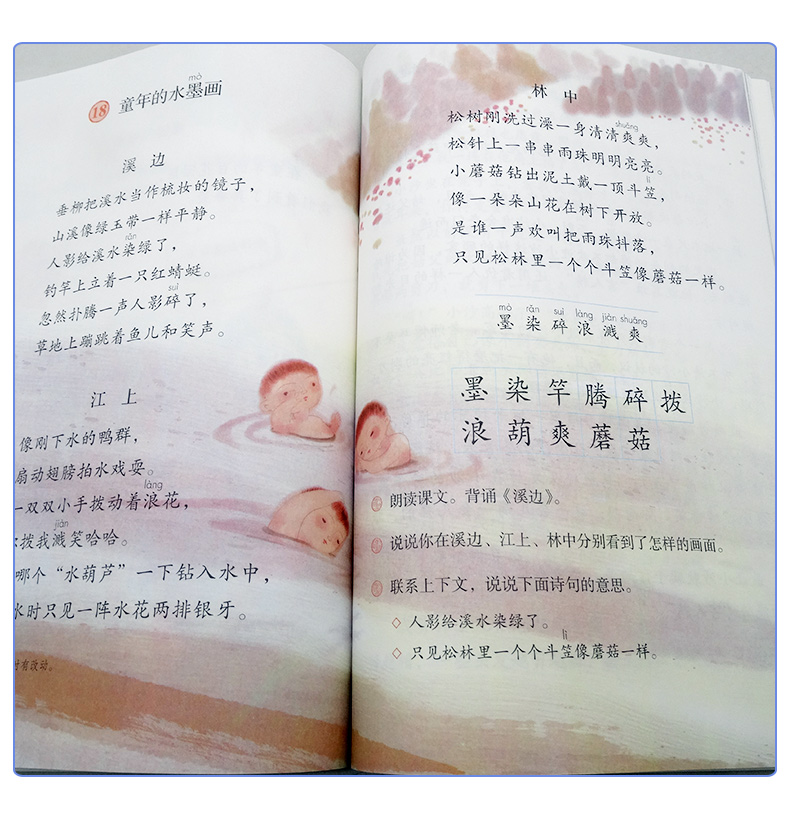 mò
18 童年的水墨画
溪 边
垂柳把溪水当作梳妆的镜子，
山溪像绿玉带一样平静。
rǎn
人影给溪水染绿了，
钓竿上立着一只红蜻蜓。
suì
忽然扑腾一声人影碎了，
草地上蹦跳着鱼儿和笑声。
江 上
像刚下水的鸭群，
扇动翅膀拍水戏耍。
làng
一双双小手拨动着浪花，
jiàn
拨我溅笑哈哈。
哪个“水葫芦”一下钻入水中，
水时只见一阵水花两排银牙。
时有改动。
林 中
松树刚洗过澡一身清清爽爽，
shuǎng
松针上一串串雨珠明明亮亮。
lì
小蘑菇钻出泥土戴一顶斗笠，
像一朵朵山花在树下开放。
是谁一声欢叫把雨珠抖落，
只见松林里一个个斗笠像蘑菇一样。
mò rǎn suì làng jiàn shuǎng
墨 染 碎 浪 溅 爽
墨 染 竿 腾 碎 拨
浪 葫 爽 蘑 菇
朗读课文。背诵《溪边》。
说说你在溪边、江上、林中分别看到了怎样的画面。
联系上下文，说说下面诗句的意思。
◇ 人影给溪水染绿了。
lì
◇ 只见松林里一个个斗笠像蘑菇一样。